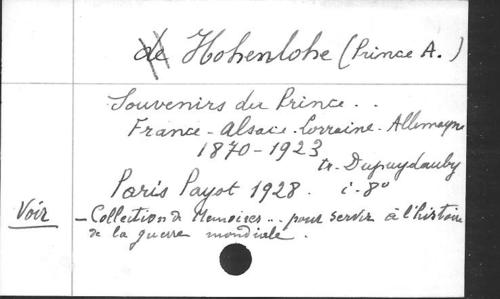 de Hohenlohe (Prince A.)
Souvenirs du Prince . .
France - Alsace - Lorraine - Allemagne
1870-1923
tr. Dupuydauby
Paris Payot 1928. i-8°
Voir
- Collection de Memoires ... pour servir à l'histoire
de la guerre mondiale.